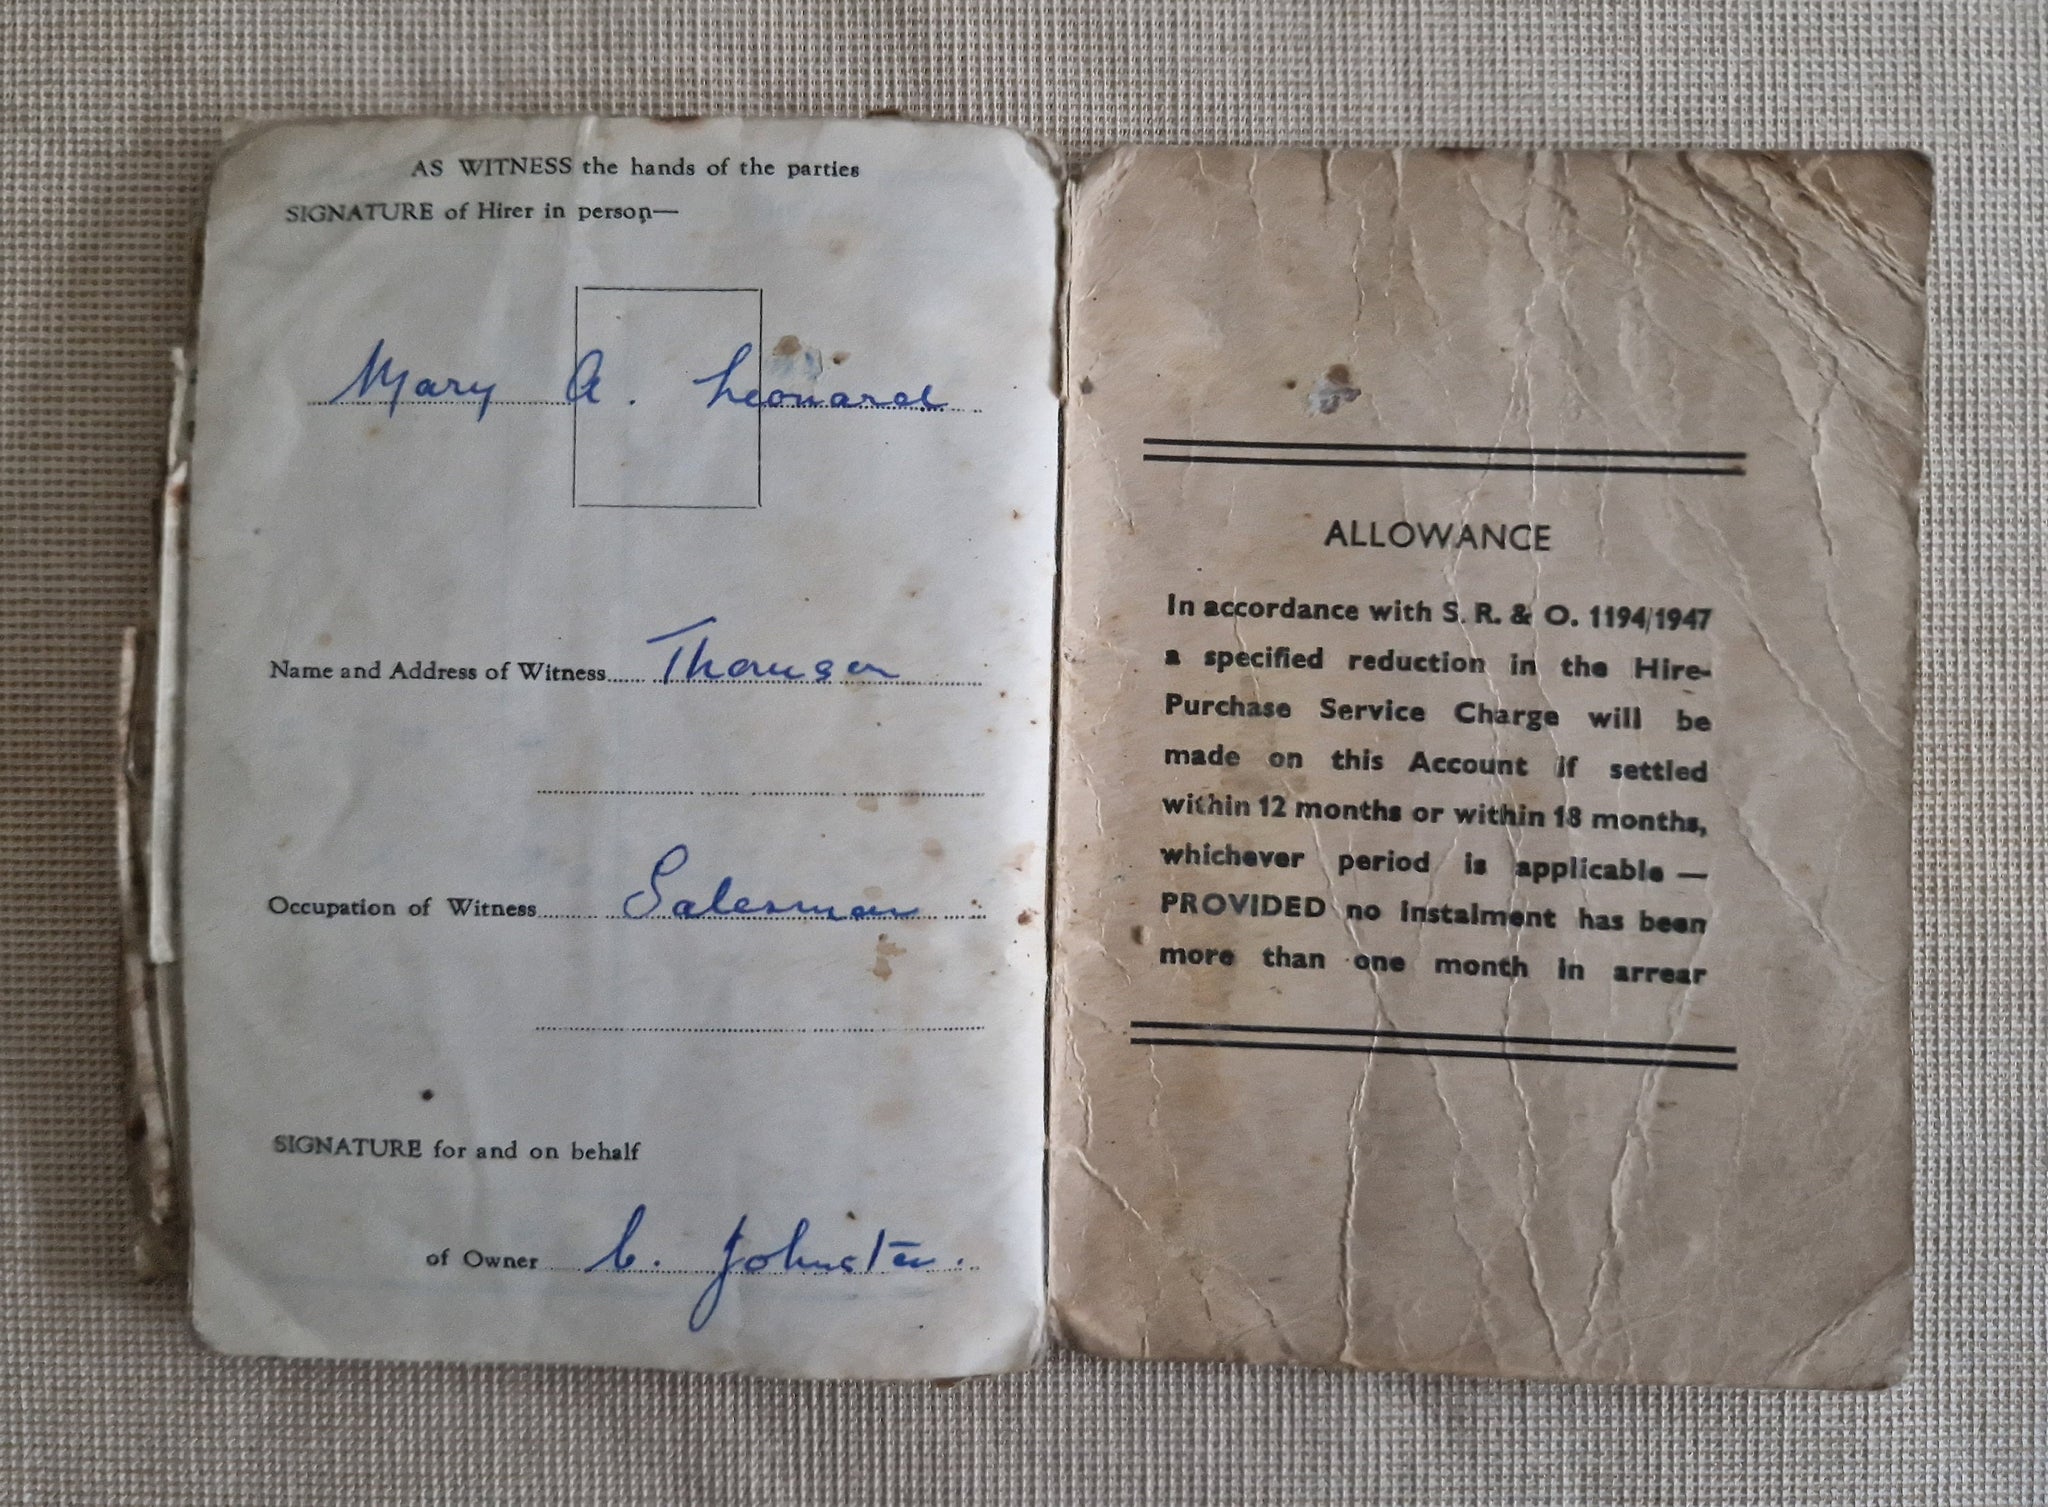 AS WITNESS the hands of the parties
SIGNATURE of Hirer in person—
Mary A. Leonard
Name and Address of Witness Thomson
Occupation of Witness Salesman
SIGNATURE for and on behalf
of Owner C. Johnston.
ALLOWANCE
In accordance with S. R. & O. 1194/1947
a specified reduction in the Hire-
Purchase Service Charge will be
made on this Account if settled
within 12 months or within 18 months,
whichever period is applicable —
PROVIDED no instalment has been
more than one month in arrear